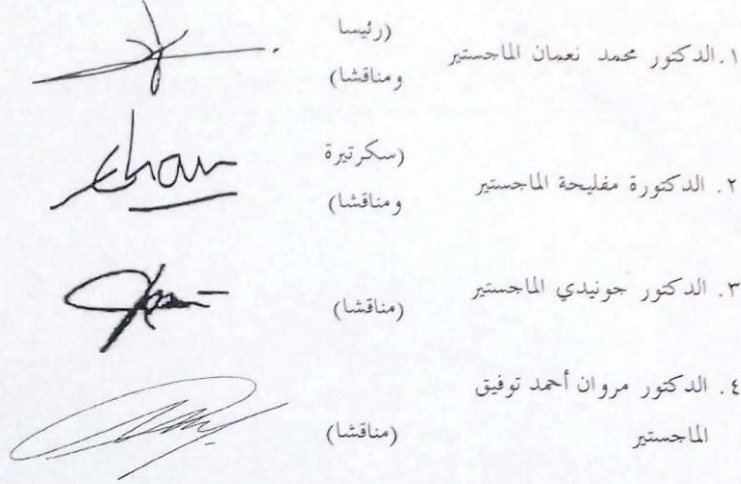 ١. الدكتور محمد نعمان الماجستير (رئيسا
ومناقشا)
٢. الدكتورة مفليحة الماجستير (سكرتيرة
ومناقشا)
٣. الدكتور جونيدي الماجستير (مناقشا)
٤. الدكتور مروان أحمد توفيق
الماجستير (مناقشا)